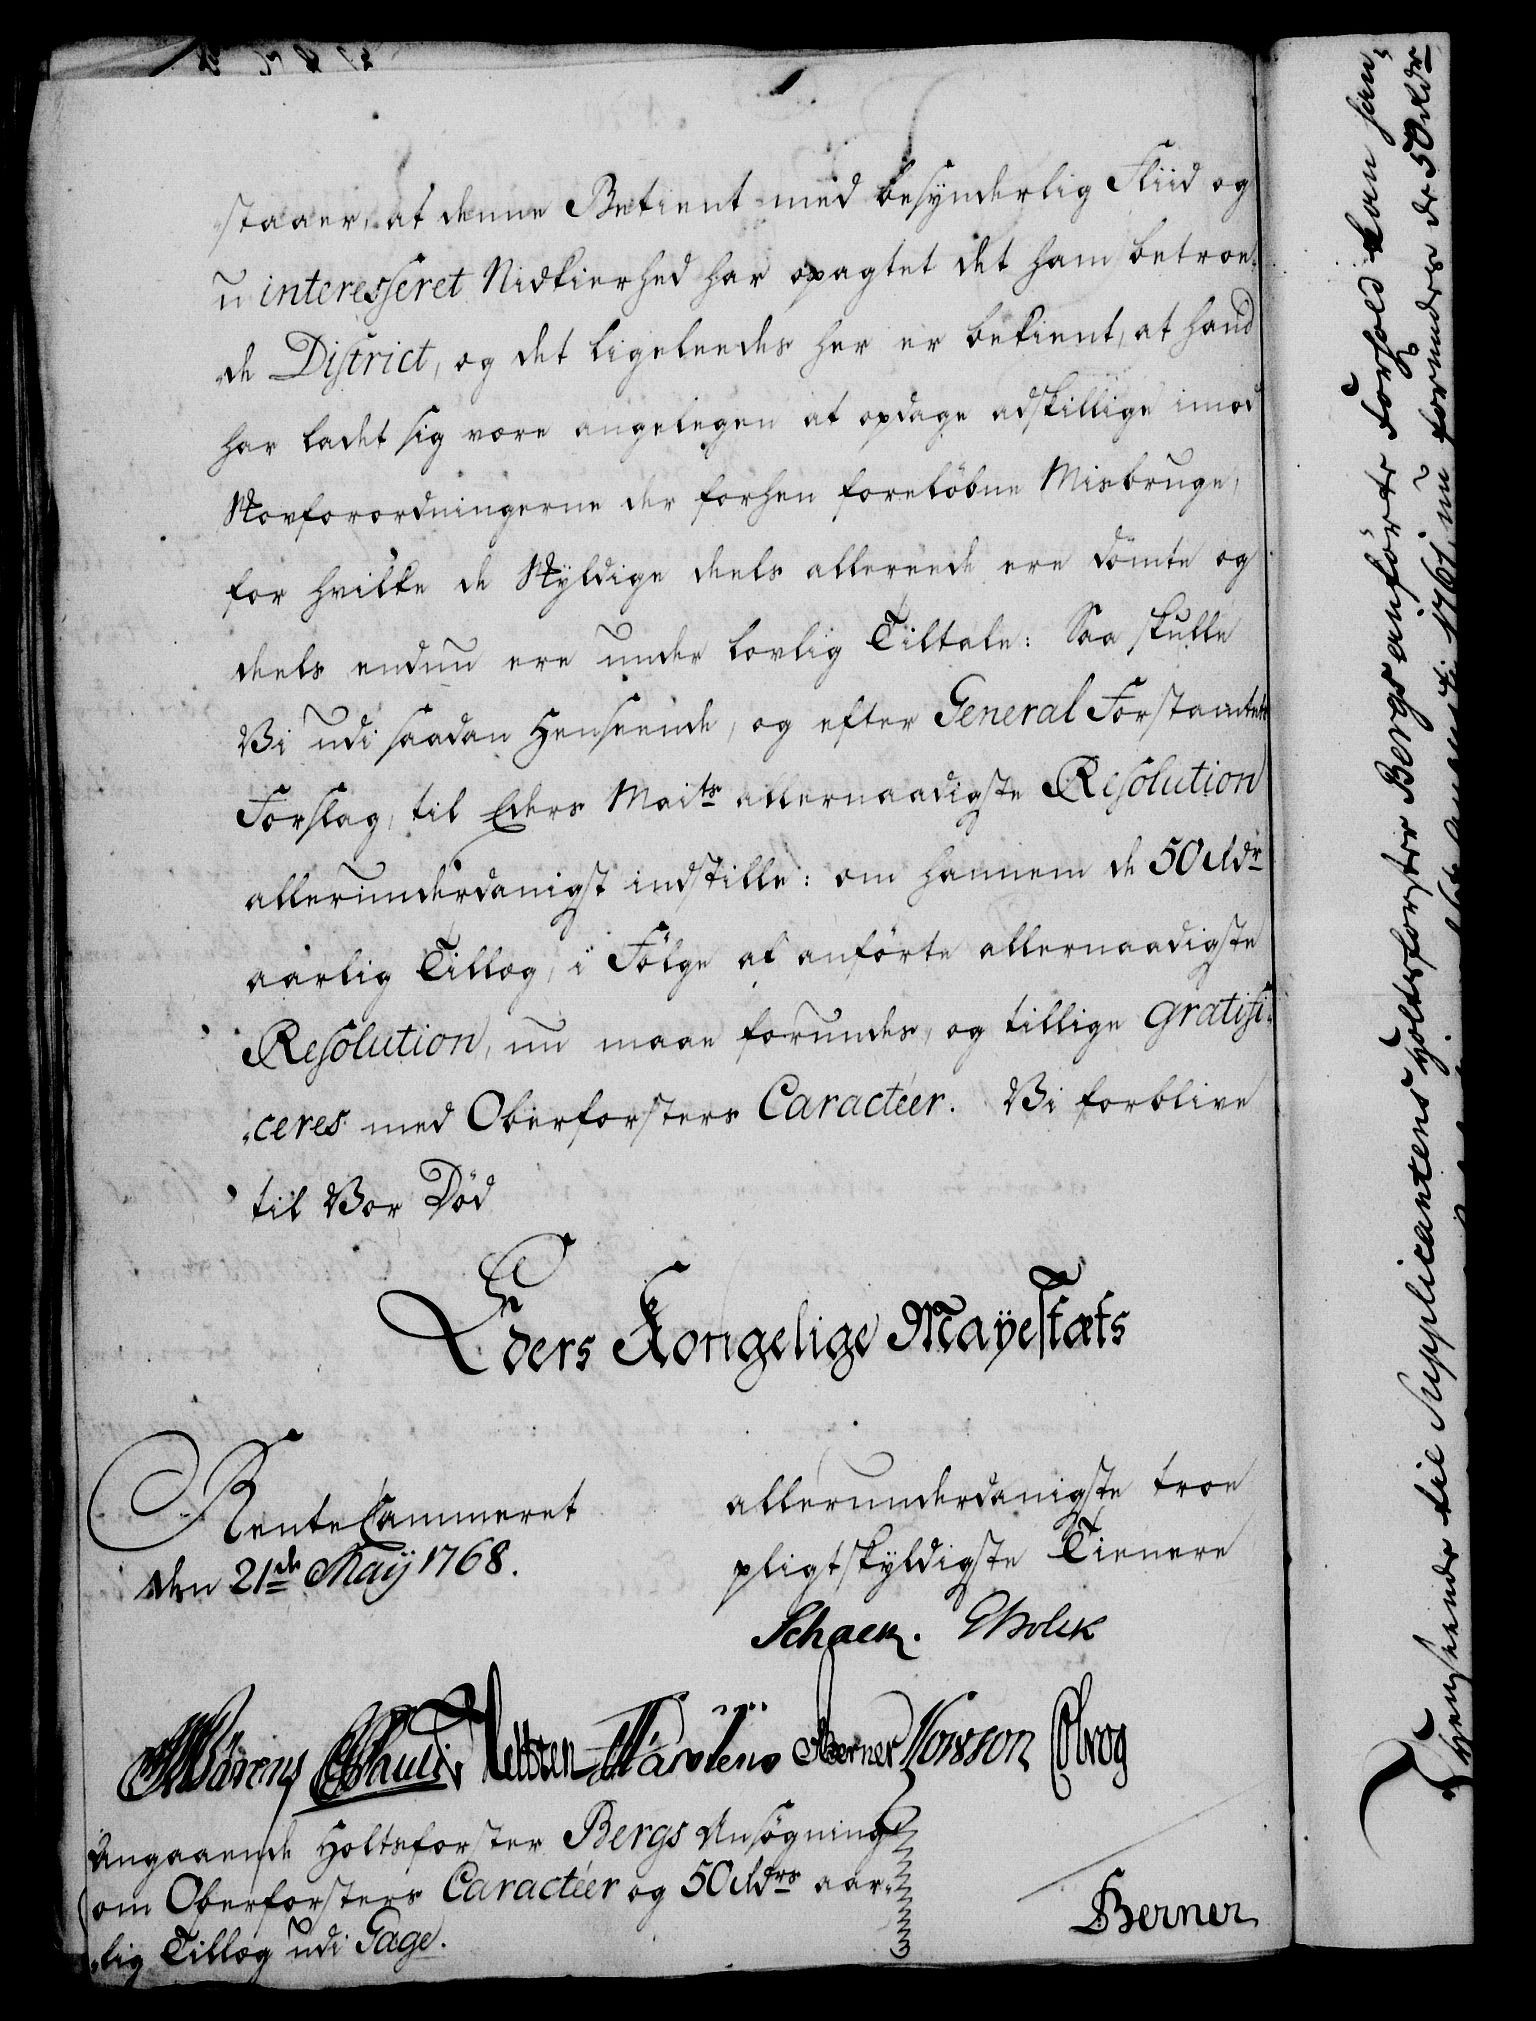 staaer, at denne Betient med besynderlig Fliid og
u interesseret Nidkierhed har opagtet det ham betroe-
de District, og det ligeleedes her er bekient, at hand
har ladet sig være angelegen at opdage adskillige imod
Skovforordningerne der forhen foreløbne Misbruge,
for hvilke de Skyldige deels allereede ere dømte og
deels endnu ere under lovlig Tiltale: Saa skulle
Vi udi saadan Henseende, og efter General Forstamtets
Forslag, til Eders Maits allernaadigste Resolution
allerunderdanigst indstille: om hannem de 50 Rdr
aarlig Tillæg, i Følge af anførte allernaadigste
Resolution, nu maae forundes, og tillige gratifi-
ceres med Oberforsters Caractéer. Vi forblive
til Vor Død
Eders Kongelige Mayestæts
RenteCammeret
den 21de Maij 1768.
allerunderdanigste troe
pligtskyldigste Tienere
Schack.
Berner
Angaaende Holtsforster Bergs Ansøgning
om Oberforsters Caractéer og 50 Rdrs aar-
lig Tillæg udi Gage.
Berner
I Henseende til Supplicantens Holtsforster Bergs anførte Forhold kan han,
1767, nu forundes de 50 Rdr